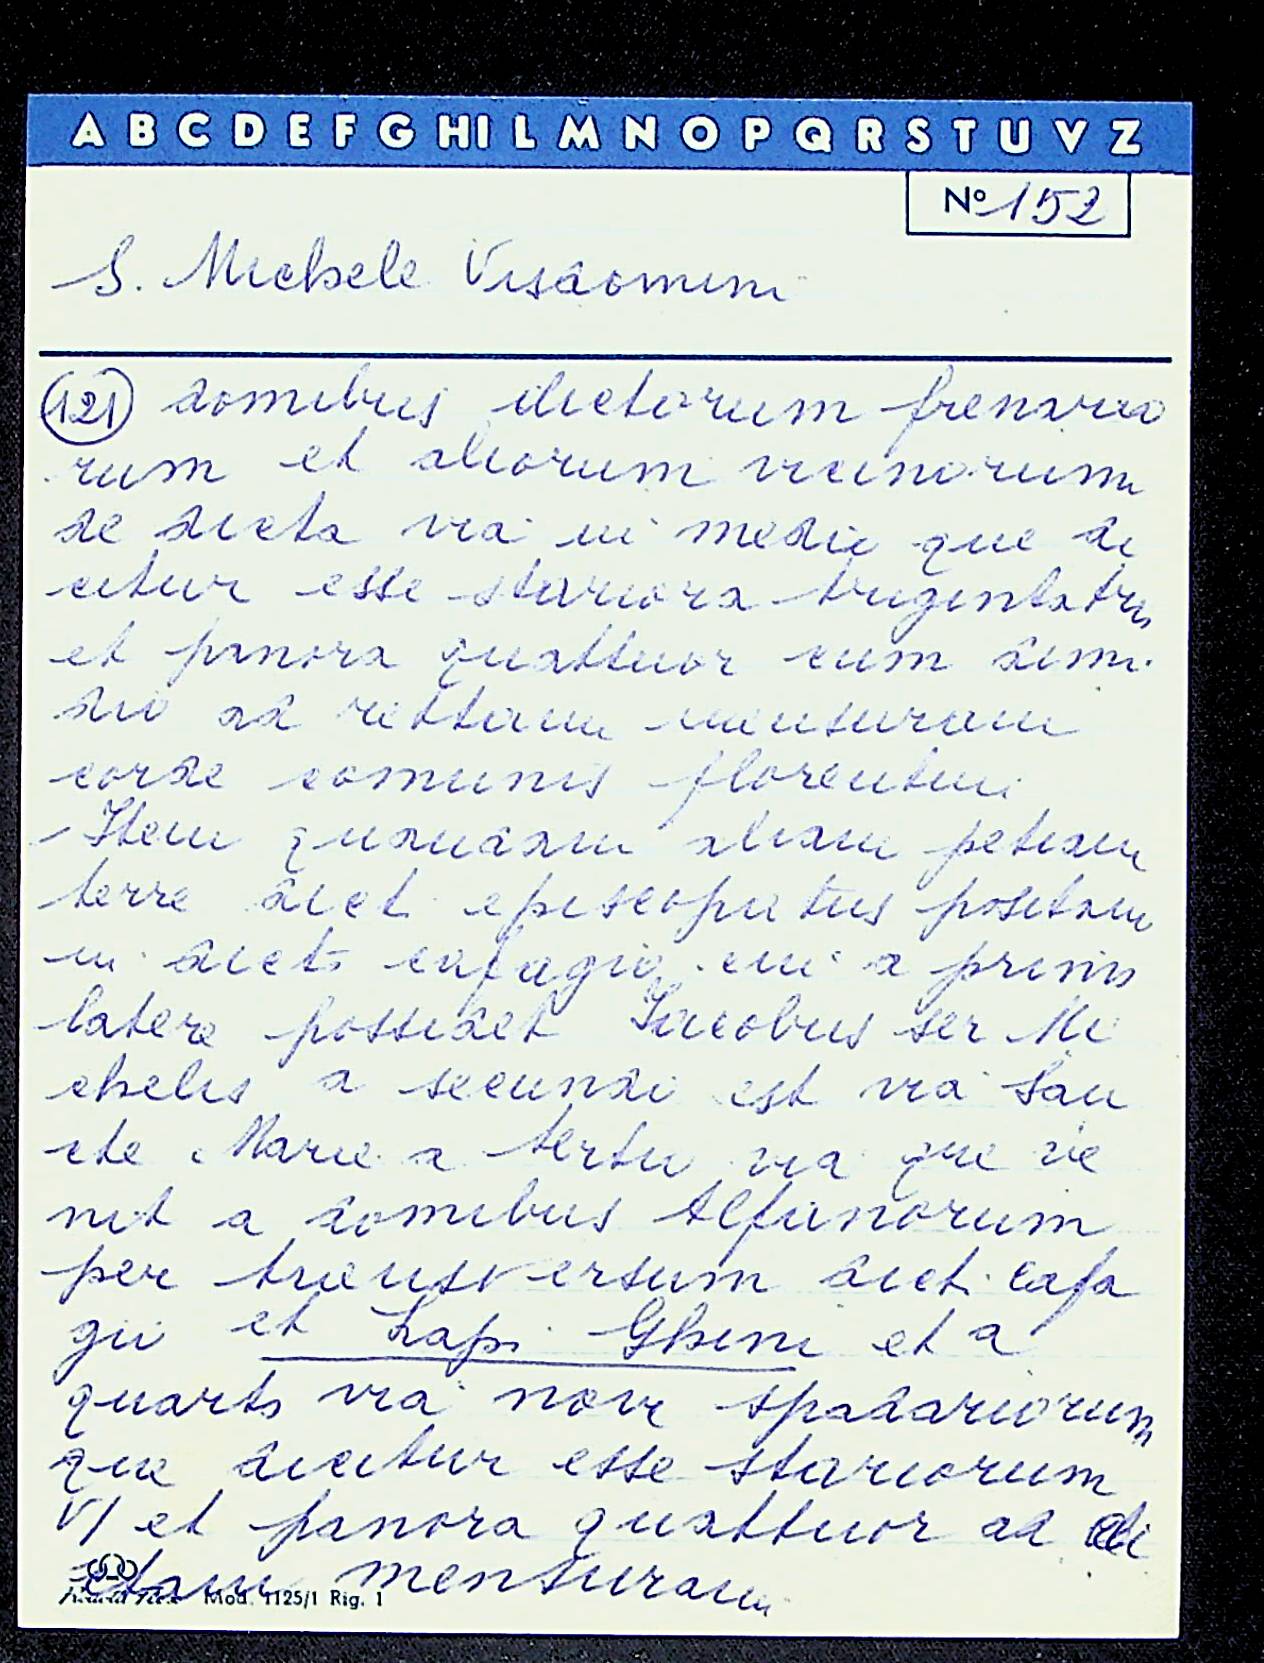 A B C D E F G H I L M N O P Q R S T U V Z
Nº 152
S. Michele Visdomini
(121) domibus dictorum frenario
rum et aliorum vicinorum
de dicta via in medio que di
citur esse stariora trigintatres
et panora quattuor cum dimi
dio ad rettam mensuram
corde comunis florentini
Item quandam aliam petiam
terre dict episcopatus positam
in dicto cafagio cui a primo
latere possidet Iacobus ser Mi
chelis a secundo est via San
cte Marie a tertio via que ve
nit a domibus Alfanorum
per transversum dict. cafa
gii et Lapi Ghini et a
quarto via nove spadariorum
que dicitur esse stariorum
VI et panora quattuor ad di
ctam mensuram
Mod. 1125/1 Rig. 1